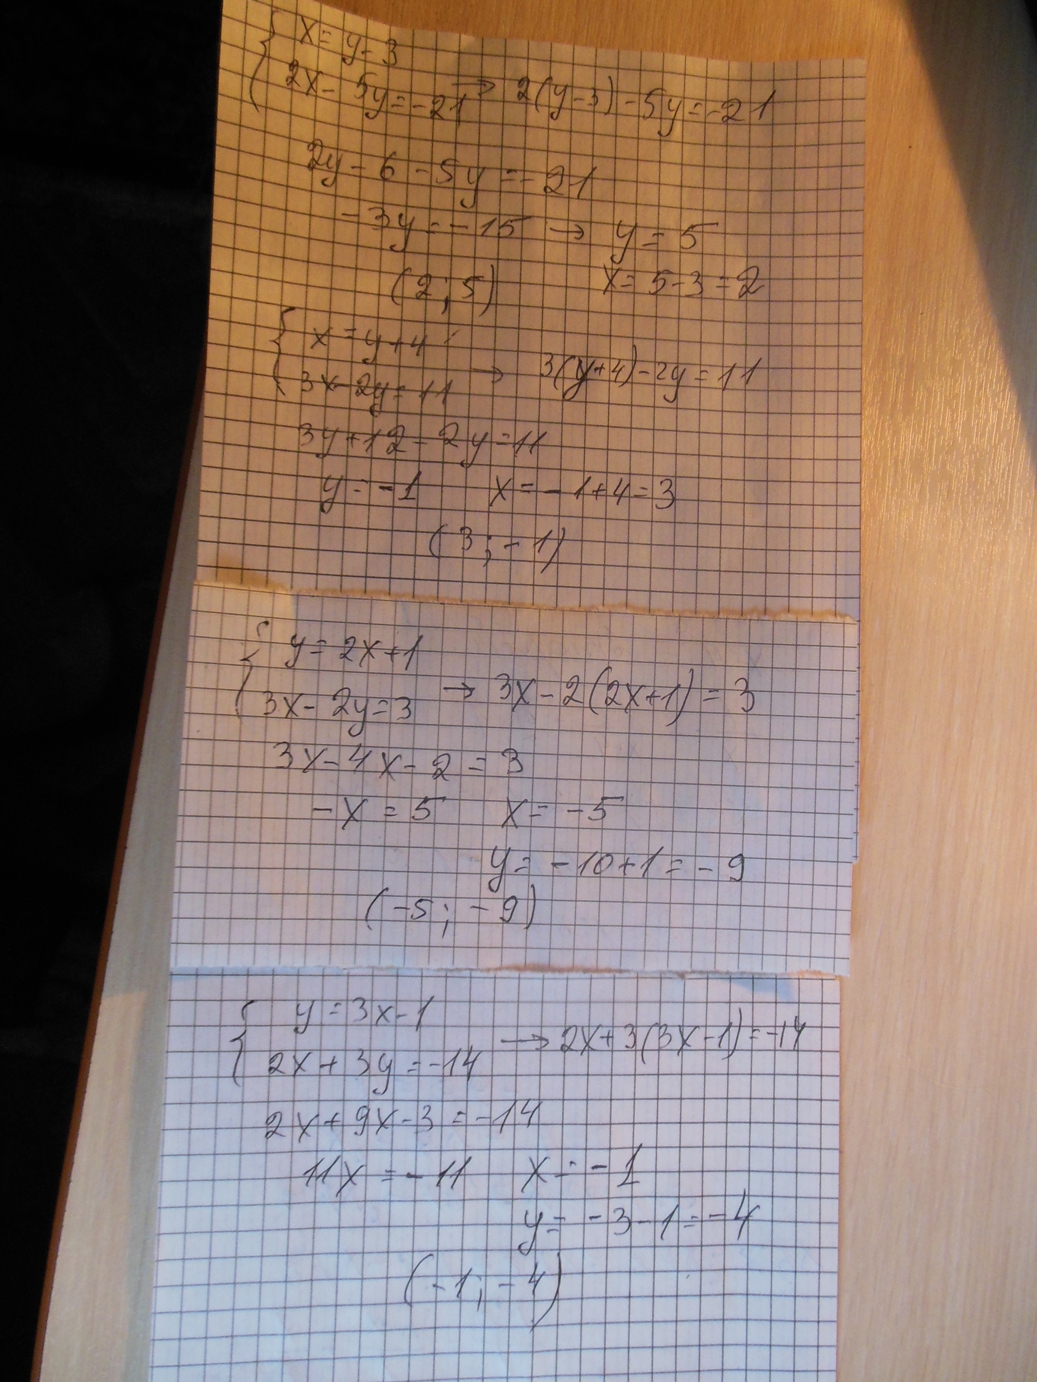 { x = y - 3
2x - 5y = -21 → 2(y - 3) - 5y = -21
2y - 6 - 5y = -21
-3y = -15 → y = 5
(2 ; 5) x = 5 - 3 = 2
{ x = y + 4
3x - 2y = 11 → 3(y + 4) - 2y = 11
3y + 12 - 2y = 11
y = -1 x = -1 + 4 = 3
(3 ; -1)
{ y = 2x + 1
3x - 2y = 3 → 3x - 2(2x + 1) = 3
3x - 4x - 2 = 3
-x = 5 x = -5
y = -10 + 1 = -9
(-5 ; -9)
{ y = 3x - 1
2x + 3y = -14 → 2x + 3(3x - 1) = -14
2x + 9x - 3 = -14
11x = -11 x = -1
y = -3 - 1 = -4
(-1 ; -4)